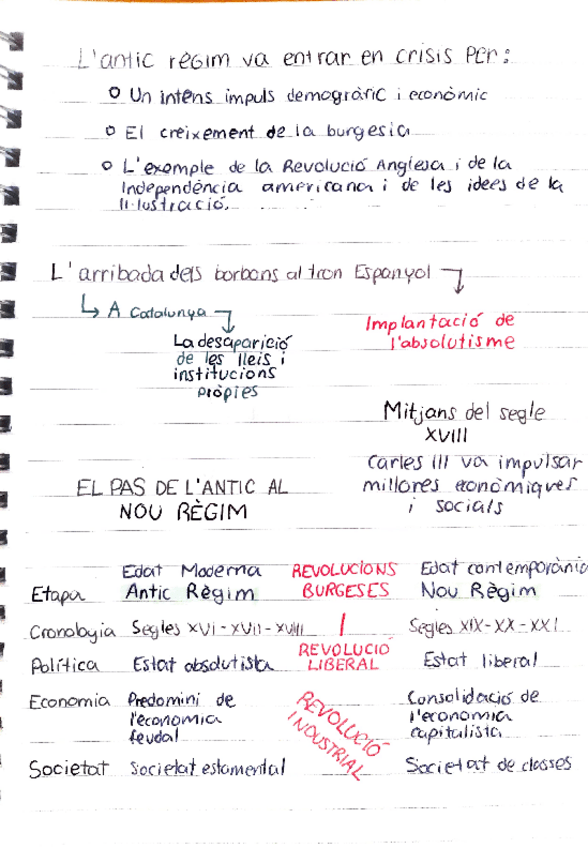 L'antic règim va entrar en crisis per:
o Un intens impuls demogràfic i econòmic
o El creixement de la burgesia
o L'exemple de la Revolució Anglesa i de la
Independència americana i de les idees de la
Il·lustració.
L'arribada dels borbons al tron Espanyol
↳ A Catalunya
Implantació de
l'absolutisme
La desaparició
de les lleis i
institucions
pròpies
Mitjans del segle
XVIII
Carles III va impulsar
millores econòmiques
i socials
EL PAS DE L'ANTIC AL
NOU RÈGIM
Edat Moderna REVOLUCIONS Edat contemporània
Etapa Antic Règim BURGESES Nou Règim
Cronologia Segles XVI-XVII-XVIII | Segles XIX-XX-XXI
REVOLUCIÓ
Política Estat absolutista LIBERAL Estat liberal
Economia Predomini de Consolidació de
l'economia l'economia
feudal capitalista
REVOLUCIÓ
INDUSTRIAL
Societat Societat estamental Societat de classes